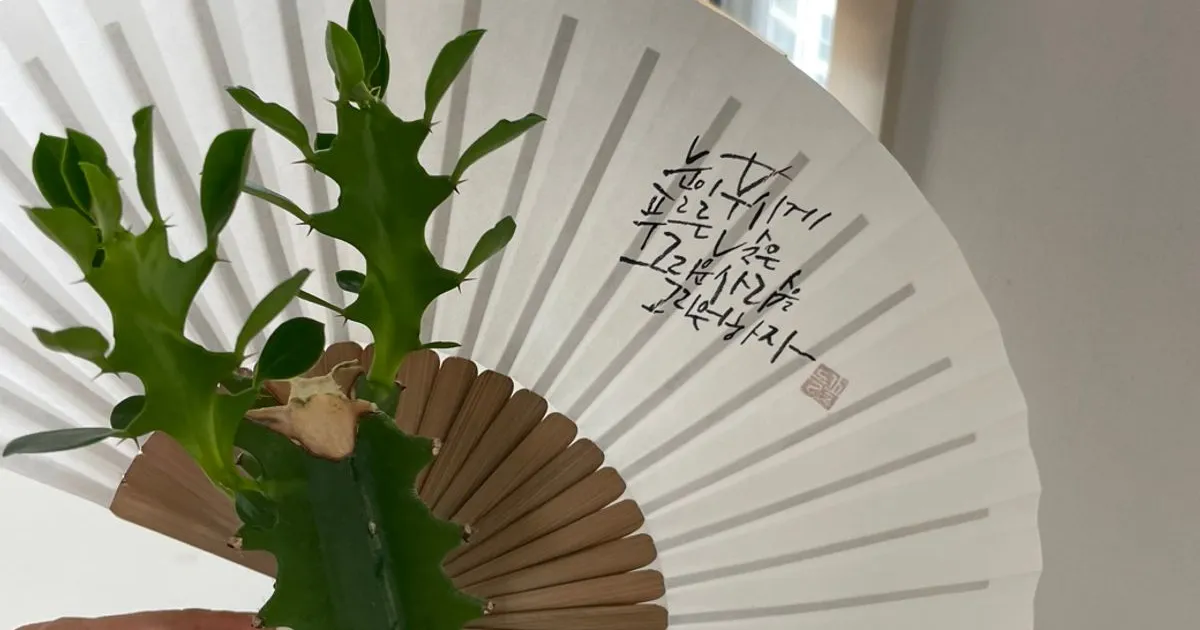 눈이 부시게
푸르른 날은
그리운 사람을
그리워하자